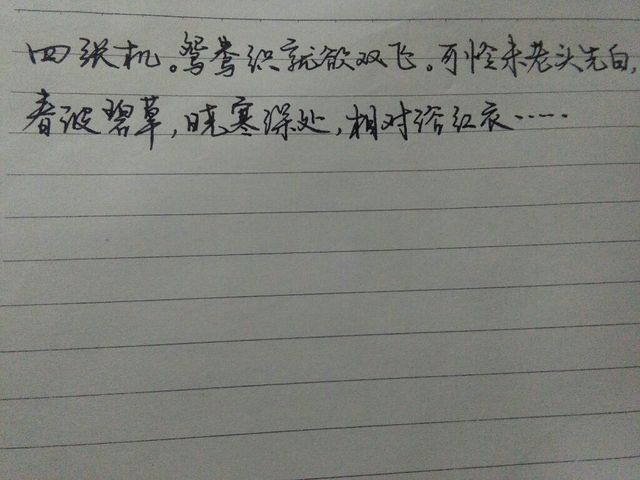 四张机。鸳鸯织就欲双飞。可怜未老头先白，
春波碧草，晓寒深处，相对浴红衣……